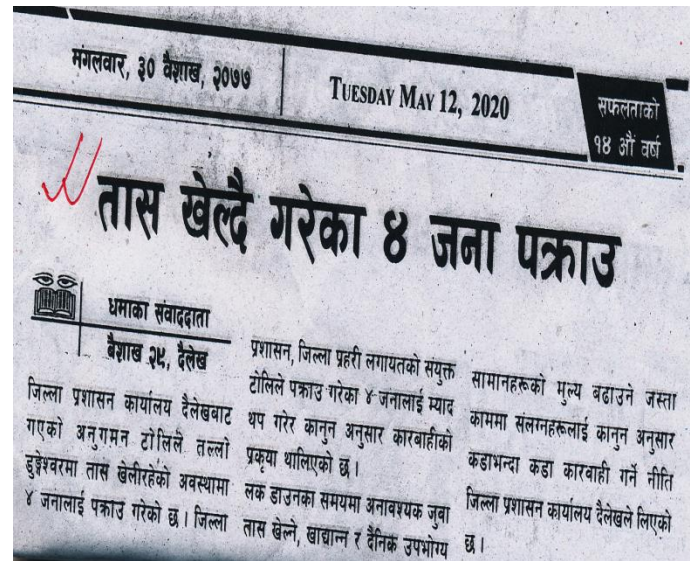 मंगलवार, ३० वैशाख, २०७७
TUESDAY MAY 12, 2020
सफलताको
१४ औं वर्ष
तास खेल्दै गरेका ४ जना पक्राउ
धमाका संवाददाता
बैशाख २९, दैलेख
जिल्ला प्रशासन कार्यालय दैलेखबाट
गएको अनुगमन टोलिले तल्लो
डुङ्गेश्वरमा तास खेलीरहेको अवस्थामा
४ जनालाई पक्राउ गरेको छ । जिल्ला
प्रशासन, जिल्ला प्रहरी लगायतको सयुक्त
टोलिले पक्राउ गरेका ४ जनालाई म्याद
थप गरेर कानुन अनुसार कारबाहीको
प्रकृया थालिएको छ ।
लक डाउनका समयमा अनावश्यक जुवा
तास खेल्ने, खाद्यान्न र दैनिक उपभोग्य
सामानहरूको मुल्य बढाउने जस्ता
काममा संलग्नहरूलाई कानुन अनुसार
कडाभन्दा कडा कारवाही गर्ने नीति
जिल्ला प्रशासन कार्यालय दैलेखले लिएको
छ ।